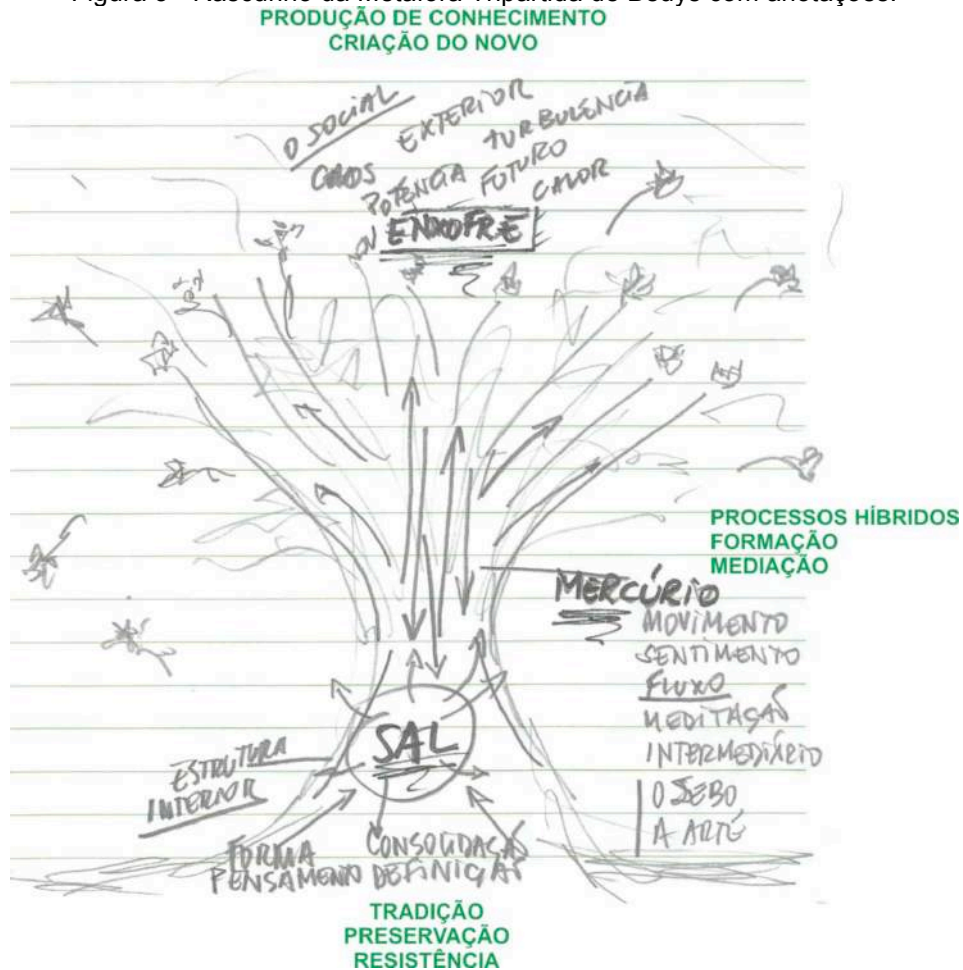 PRODUÇÃO DE CONHECIMENTO
CRIAÇÃO DO NOVO
O SOCIAL
EXTERIOR
TURBULENCIA
CAOS
POTÊNCIA
FUTURO
CALOR
ENXOFRE
PROCESSOS HÍBRIDOS
FORMAÇÃO
MEDIAÇÃO
MERCÚRIO
MOVIMENTO
SENTIMENTO
FLUXO
MEDITAÇÃO
INTERMEDIÁRIO
O SEBO,
A ARTE
SAL
ESTRUTURA
INTERIOR
FORMA
CONSOLIDAÇÃO
PENSAMENTO DEFINIÇÃO
TRADIÇÃO
PRESERVAÇÃO
RESISTÊNCIA